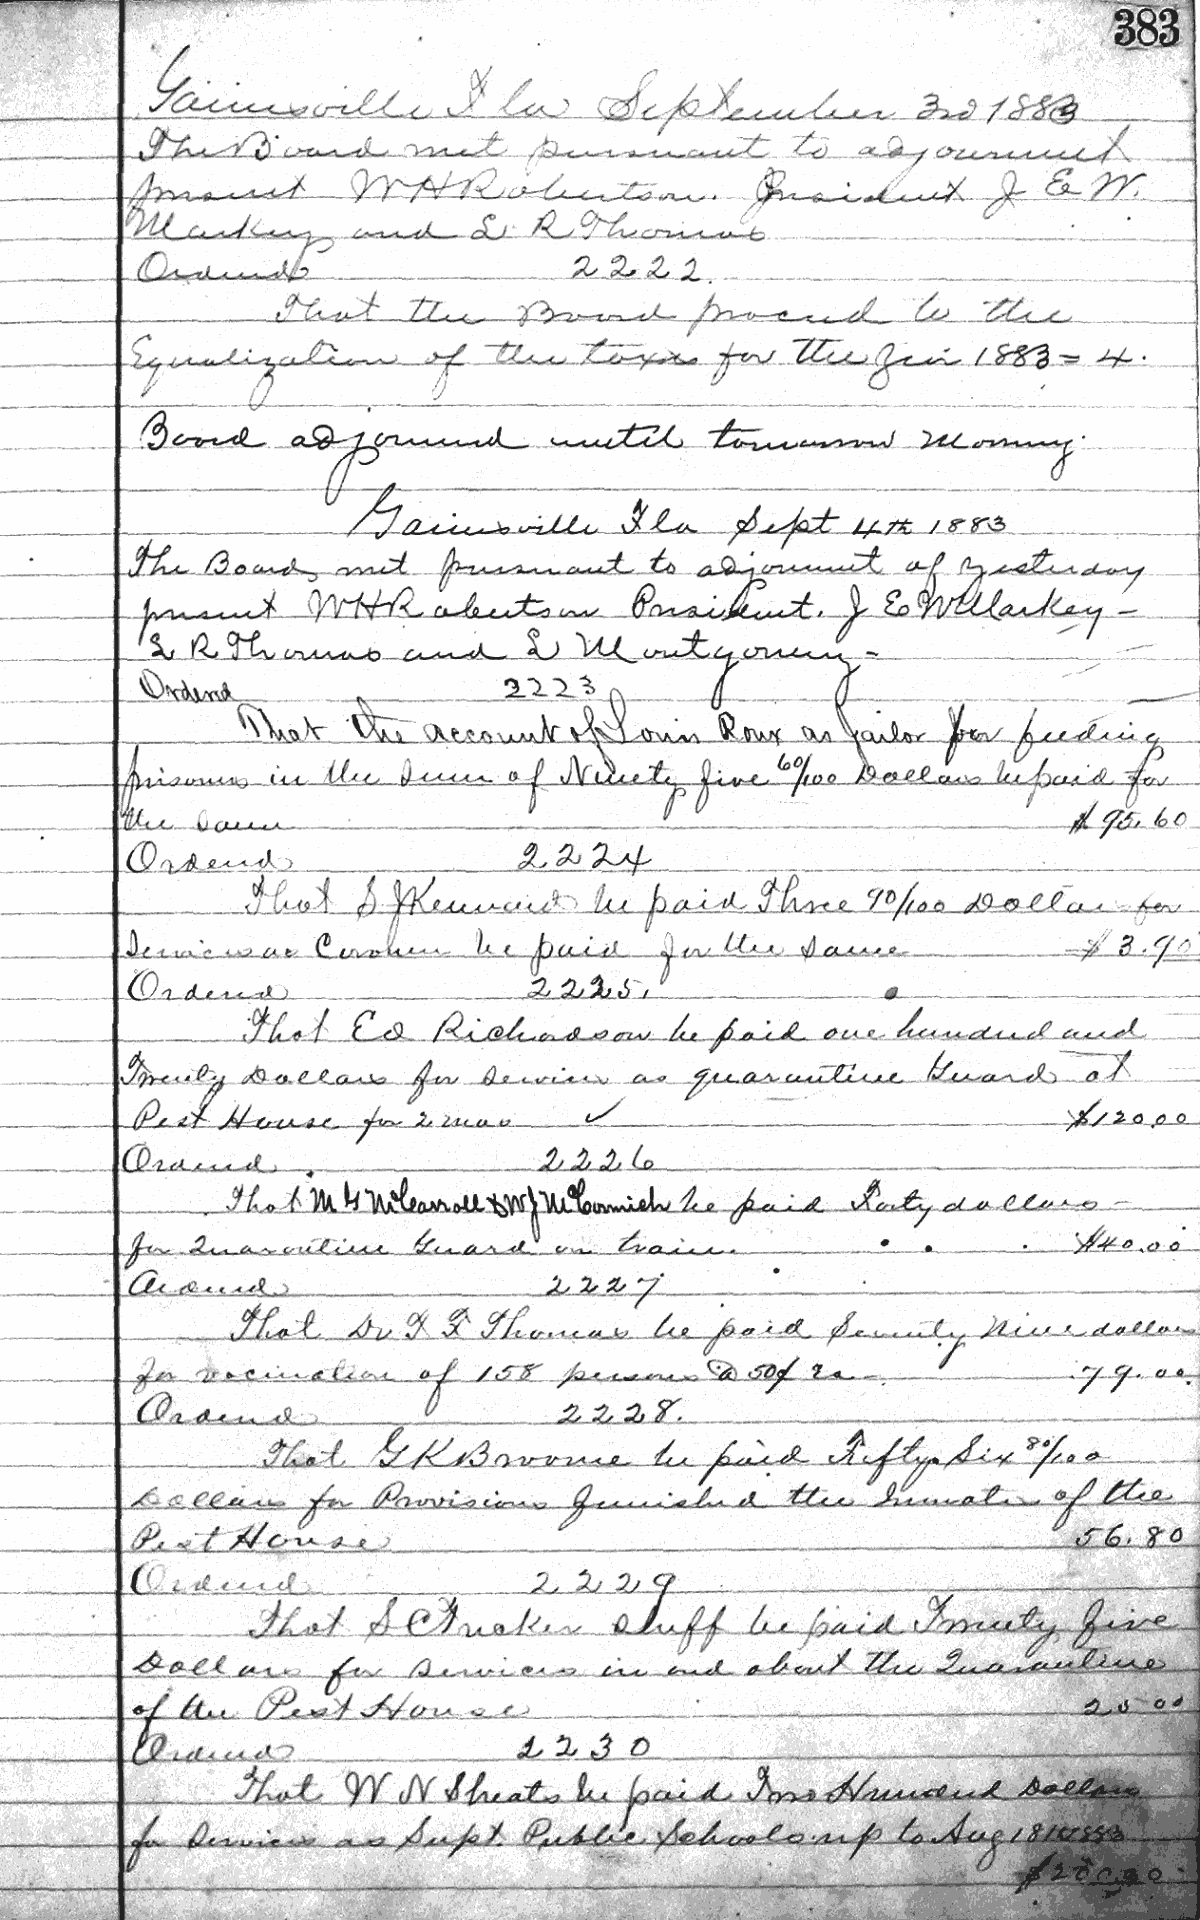 383
Gainesville Fla September 3rd 1883
The Board met pursuant to adjournment
present W H Robertson. President J E W.
Markey and L R Thomas
Ordered 2222.
That the Board proceed to the
Equalization of the taxes for the year 1883=4.
Board adjourned until tomorrow morning.
Gainesville Fla Sept 4th 1883
The Board met pursuant to adjournment of yesterday
present W H Robertson President. J E W Markey -
L R Thomas and L Montgomery -
Ordered 2223
That the account of Louis Roux as Jailor for feeding
prisoners in the sum of Ninety five 60/100 Dollars be paid for
the same $95.60
Ordered 2224
That S J Kennard be paid Three 90/100 Dollars for
services as Coroner be paid for the same $3.90
Ordered 2225.
That Ed Richardson be paid one hundred and
Twenty Dollars for service as quarantine Guard at
Pest House for 2 mos ✓ $120.00
Ordered 2226
That M G McCarroll & W J McCormick be paid Forty dollars -
for Quarantine Guard on train. $40.00
Ordered 2227
That Dr F F Thomas be paid Seventy Nine dollars
for vaccination of 158 persons @ 50¢ Ea 79.00
Ordered 2228.
That G K Broome be paid Fifty Six 80/100
Dollars for Provisions furnished the Inmates of the
Pest House 56.80
Ordered 2229
That S C Tucker Sheriff be paid Twenty five
Dollars for services in and about the Quarantine
of the Pest House 25 00
Ordered 2230
That W N Sheats be paid Two Hundred Dollars
for Services as Supt. Public Schools up to Aug 18th 1883
$200.00